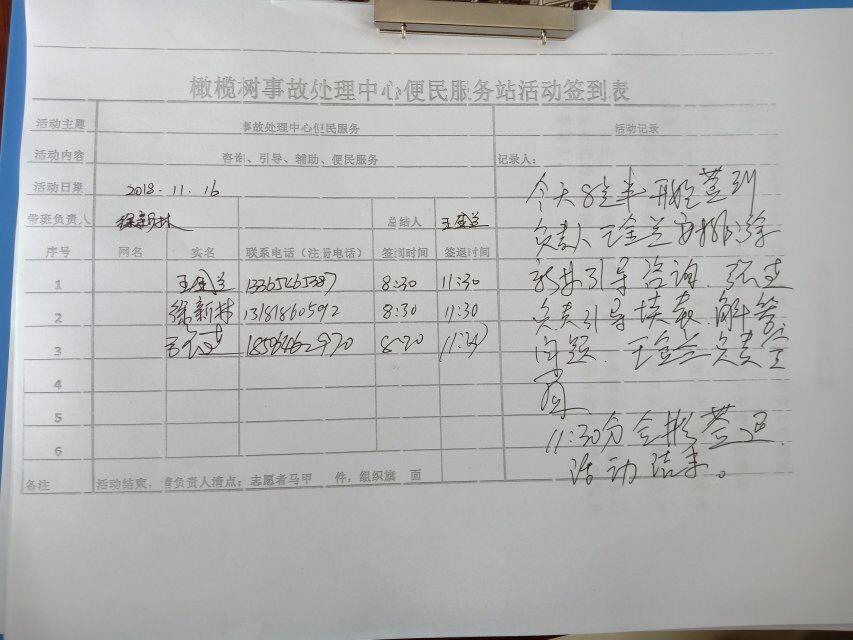 橄榄树事故处理中心便民服务站活动签到表
活动主题 事故处理中心便民服务 活动记录
活动内容 咨询、引导、辅助、便民服务 记录人:
活动日期 2018.11.16
带班负责人 徐新林 总结人 王金兰
序号 网名 实名 联系电话(注册电话) 签到时间 签退时间
1 王金兰 13365465387 8:30 11:30
2 徐新林 13181860592 8:30 11:30
3 8:30
4
5
6
备注 活动结束,请负责人清点:志愿者马甲 件,组织旗 面
今天8点半开始签到
负责人王金兰安排徐
新林引导咨询.
负责引导填表.解答
问题.王金兰负责
11:30分全体签退.
活动结束。